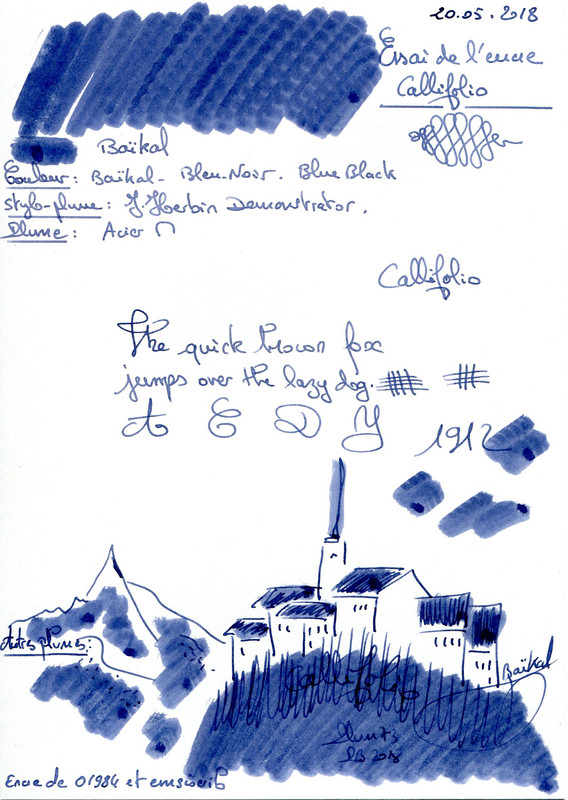 20.05.2018
Essai de l'encre
Callifolio
Baïkal
Couleur: Baïkal - Bleu-Noir. Blue Black
Stylo-plume: J. Herbin Demonstrator.
Plume: Acier M
Callifolio
The quick brown fox
jumps over the lazy dog.
A E D Y 1912
Autres plumes:
Baïkal
Callifolio
2018
Encre de 01984 et